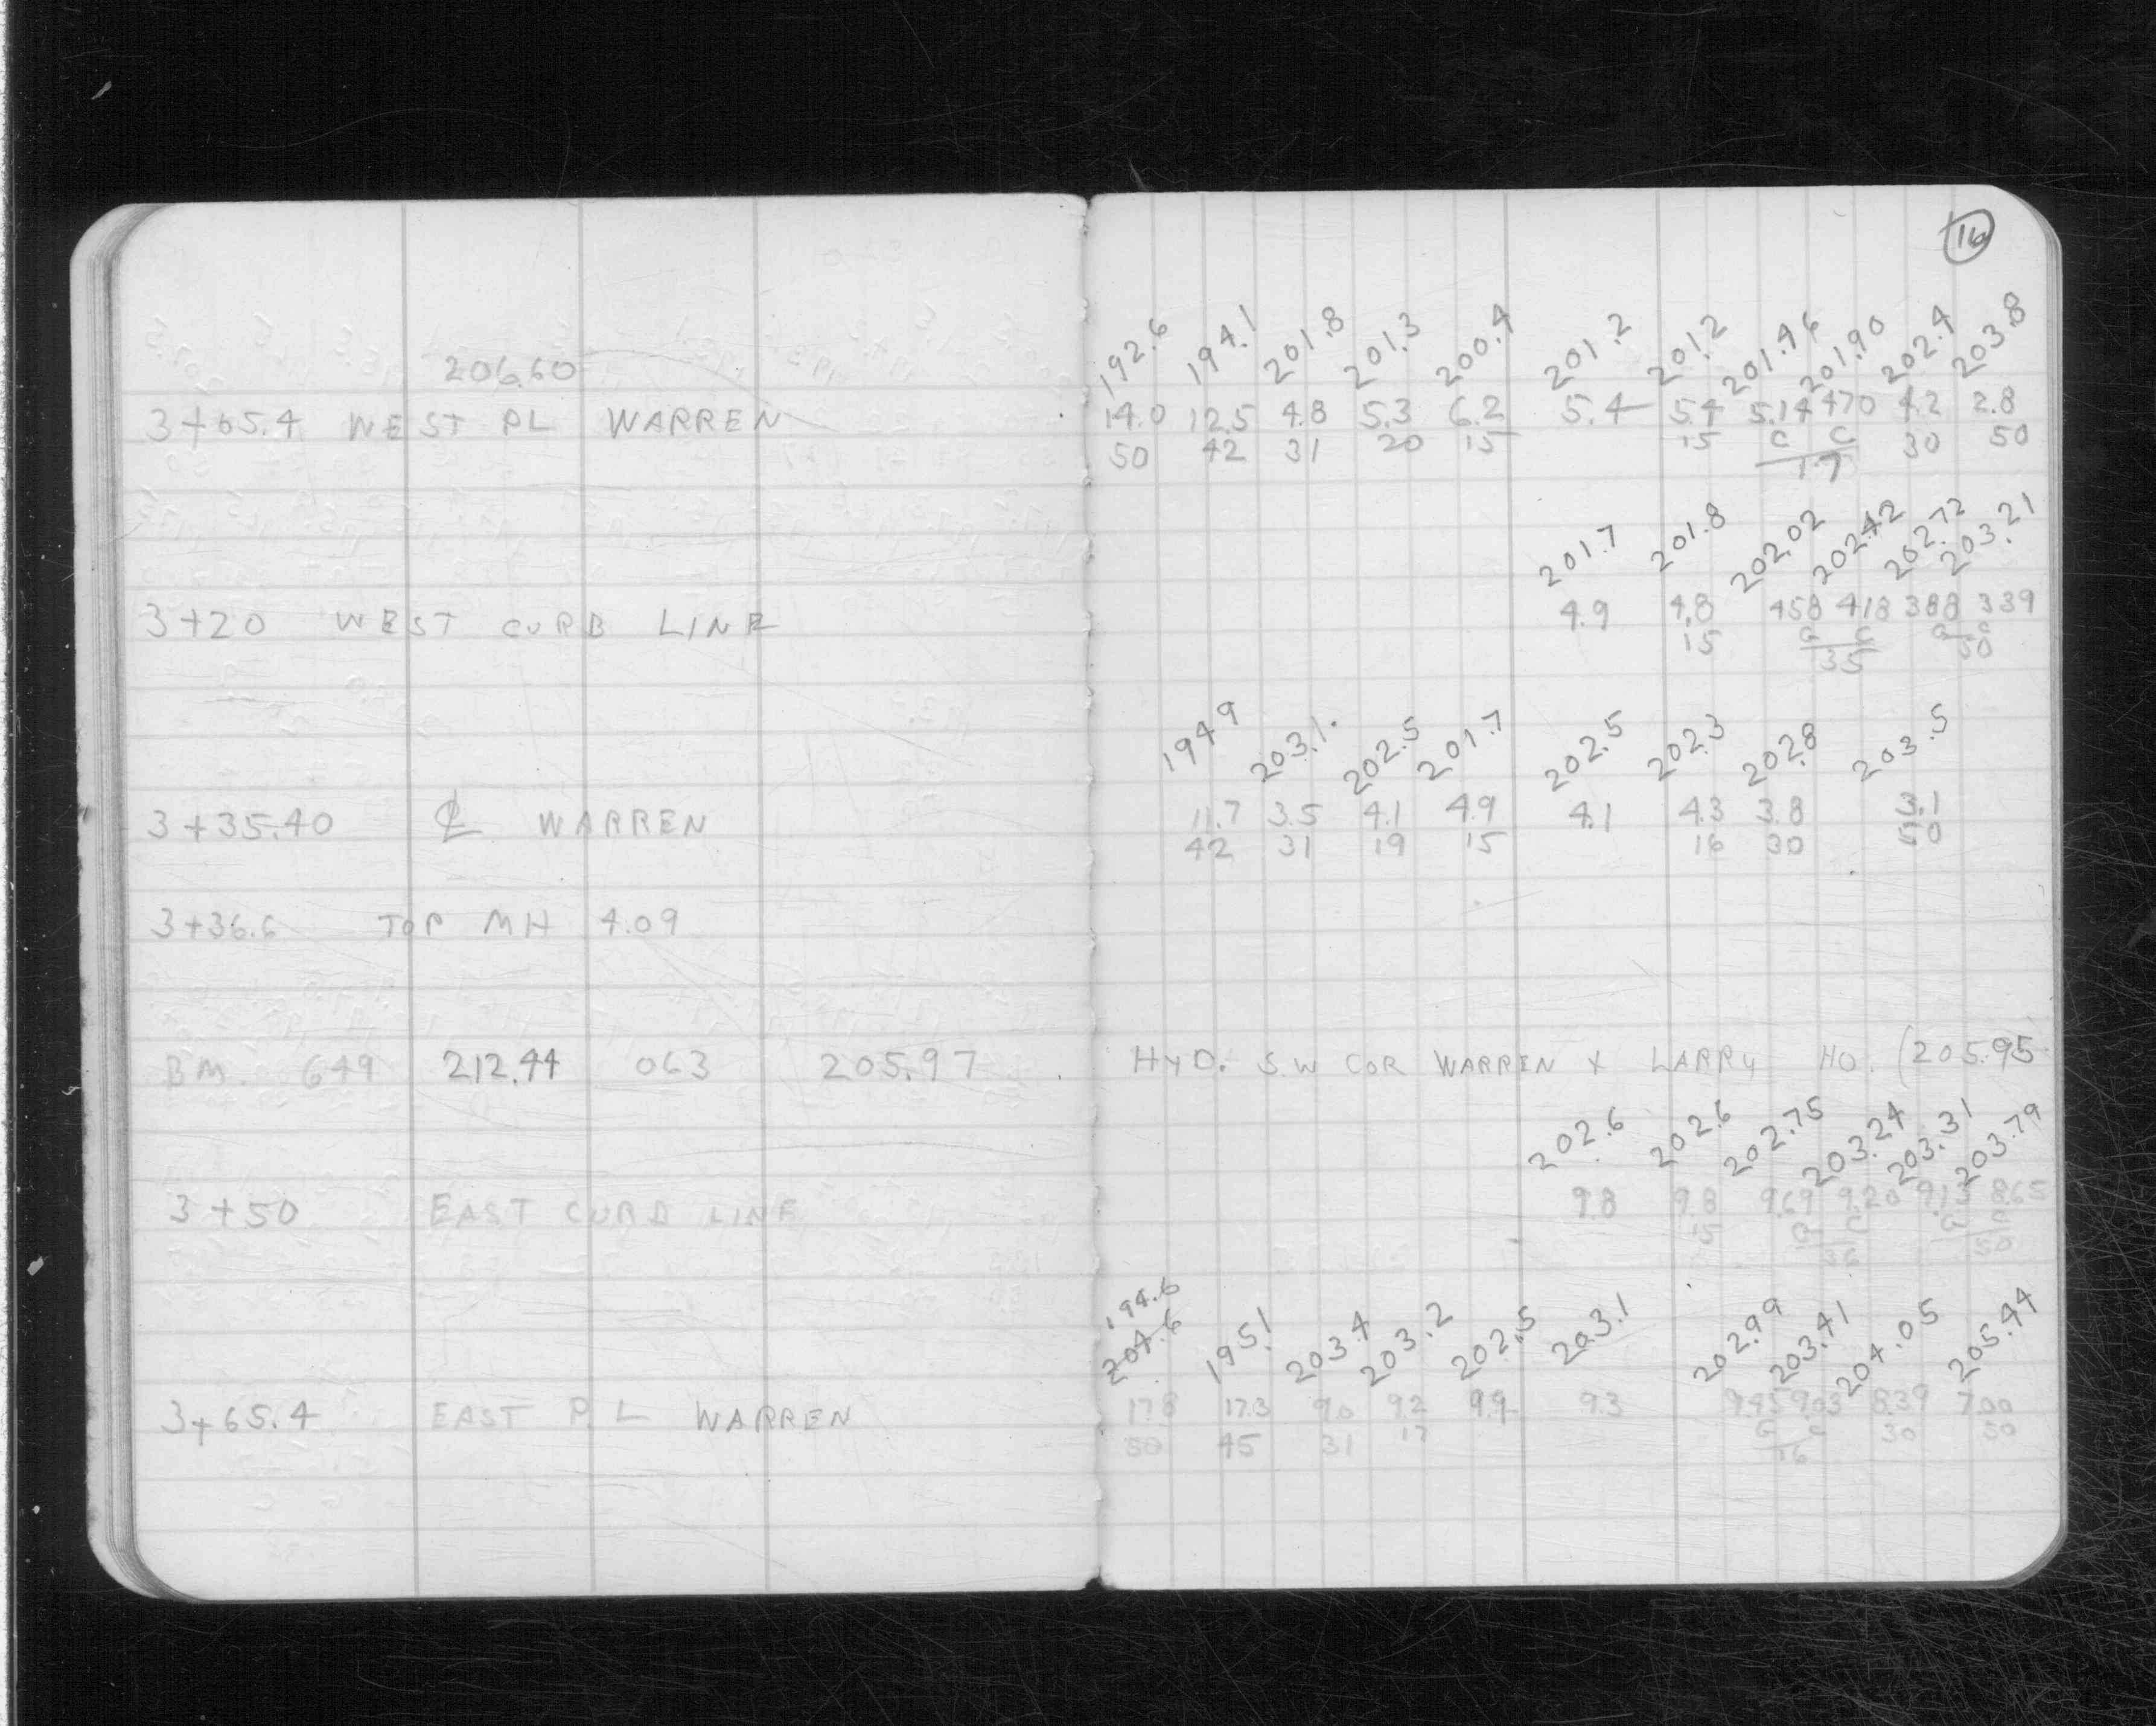 16
206.60
192.6 194.1 201.8 201.3 200.4 201.2 201.2 201.46 201.90 202.4 203.8
3+65.4 WEST PL WARREN 14.0 12.5 4.8 5.3 6.2 5.4 5.4 5.14 470 4.2 2.8
50 42 31 20 15 15 G C 30 50
17
201.7 201.8 202.02 202.42 202.72 203.21
3+20 WEST CURB LINE 4.9 4.8 458 418 388 339
15 G C G C
35 50
194.9 203.1 202.5 201.7 202.5 202.3 202.8 203.5
3+35.40 ℄ WARREN 11.7 3.5 4.1 4.9 4.1 4.3 3.8 3.1
42 31 19 15 16 30 50
3+36.6 TOP MH 4.09
BM. 649 212.44 063 205.97 HYD. S.W COR WARREN X LARRY HO. (205.95
202.6 202.6 202.75 203.24 203.31 203.79
3+50 EAST CURB LINE 9.8 9.8 9.69 9.20 9.13 865
15 G C G C
36 50
194.6
204.6 195.1 203.4 203.2 202.5 203.1 202.99 203.41 204.05 205.44
3+65.4 EAST P.L WARREN 17.8 17.3 9.0 9.2 9.9 9.3 9.45 9.03 8.39 7.00
50 45 31 17 G C 30 50
16